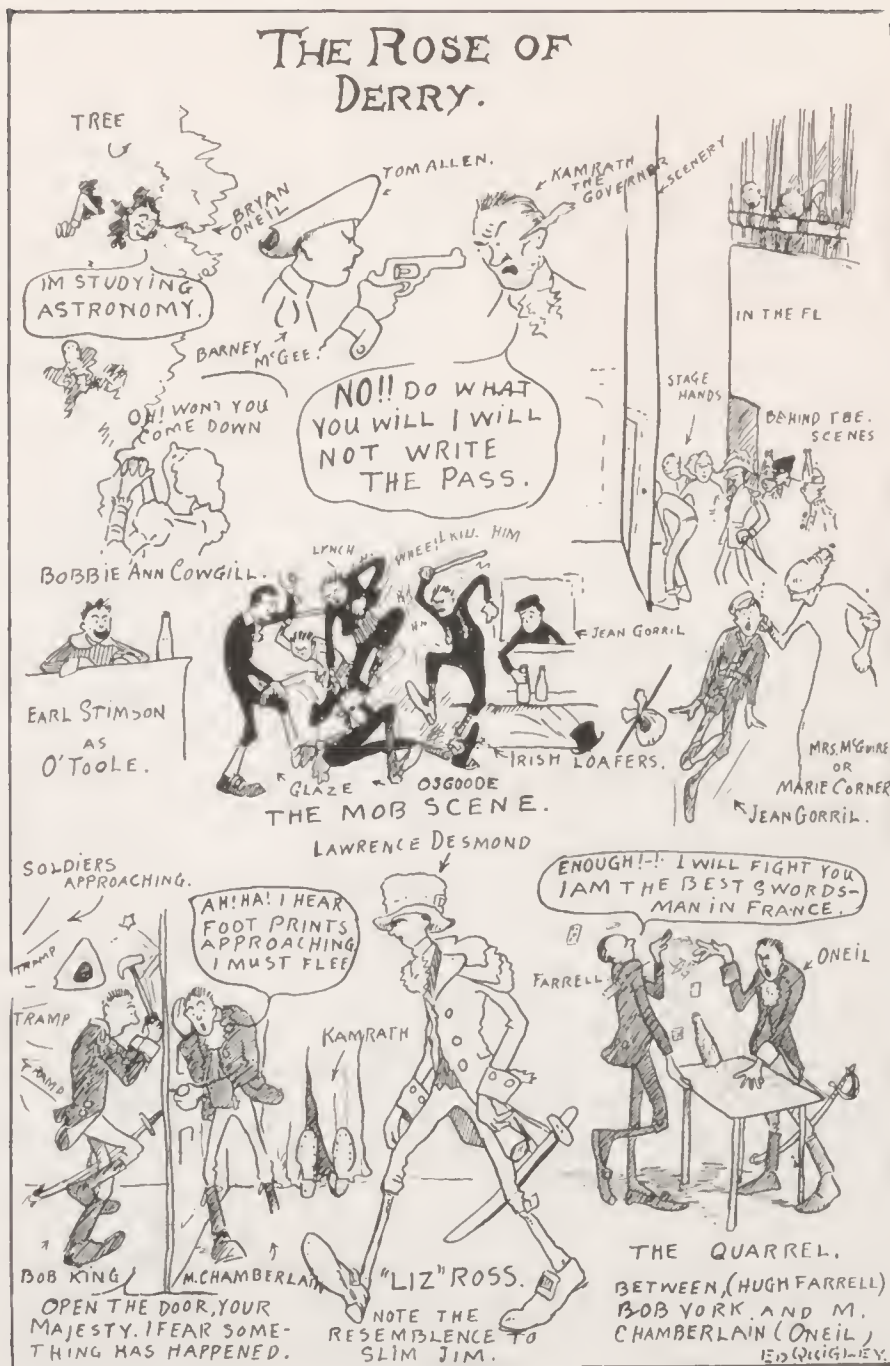 THE ROSE OF
DERRY.
TREE
BRYAN
ONEIL
IM STUDYING
ASTRONOMY.
TOM ALLEN.
BARNEY
McGEE.
KAMRATH
THE
GOVERNER
SCENERY
NO!! DO WHAT
YOU WILL I WILL
NOT WRITE
THE PASS.
IN THE FL
STAGE
HANDS
BEHIND THE.
SCENES
OH! WONT YOU
COME DOWN
BOBBIE ANN COWGILL.
EARL STIMSON
AS
O'TOOLE.
LYNCH
WHEE! KILL HIM
JEAN GORRIL
IRISH LOAFERS.
GLAZE
OSGOODE
THE MOB SCENE.
MRS. McGUIRE
OR
MARIE CORNER
JEAN GORRIL.
SOLDIERS
APPROACHING.
TRAMP
TRAMP
TRAMP
AH! HA! I HEAR
FOOT PRINTS
APPROACHING
I MUST FLEE
KAMRATH
BOB KING
M. CHAMBERLAIN
OPEN THE DOOR, YOUR
MAJESTY. I FEAR SOME-
THING HAS HAPPENED.
LAWRENCE DESMOND
"LIZ" ROSS.
NOTE THE
RESEMBLENCE TO
SLIM JIM.
ENOUGH!-!- I WILL FIGHT YOU
I AM THE BEST SWORDS-
MAN IN FRANCE.
FARRELL
ONEIL
THE QUARREL.
BETWEEN, (HUGH FARRELL)
BOB YORK AND M.
CHAMBERLAIN (ONEIL)
ED QUIGLEY.